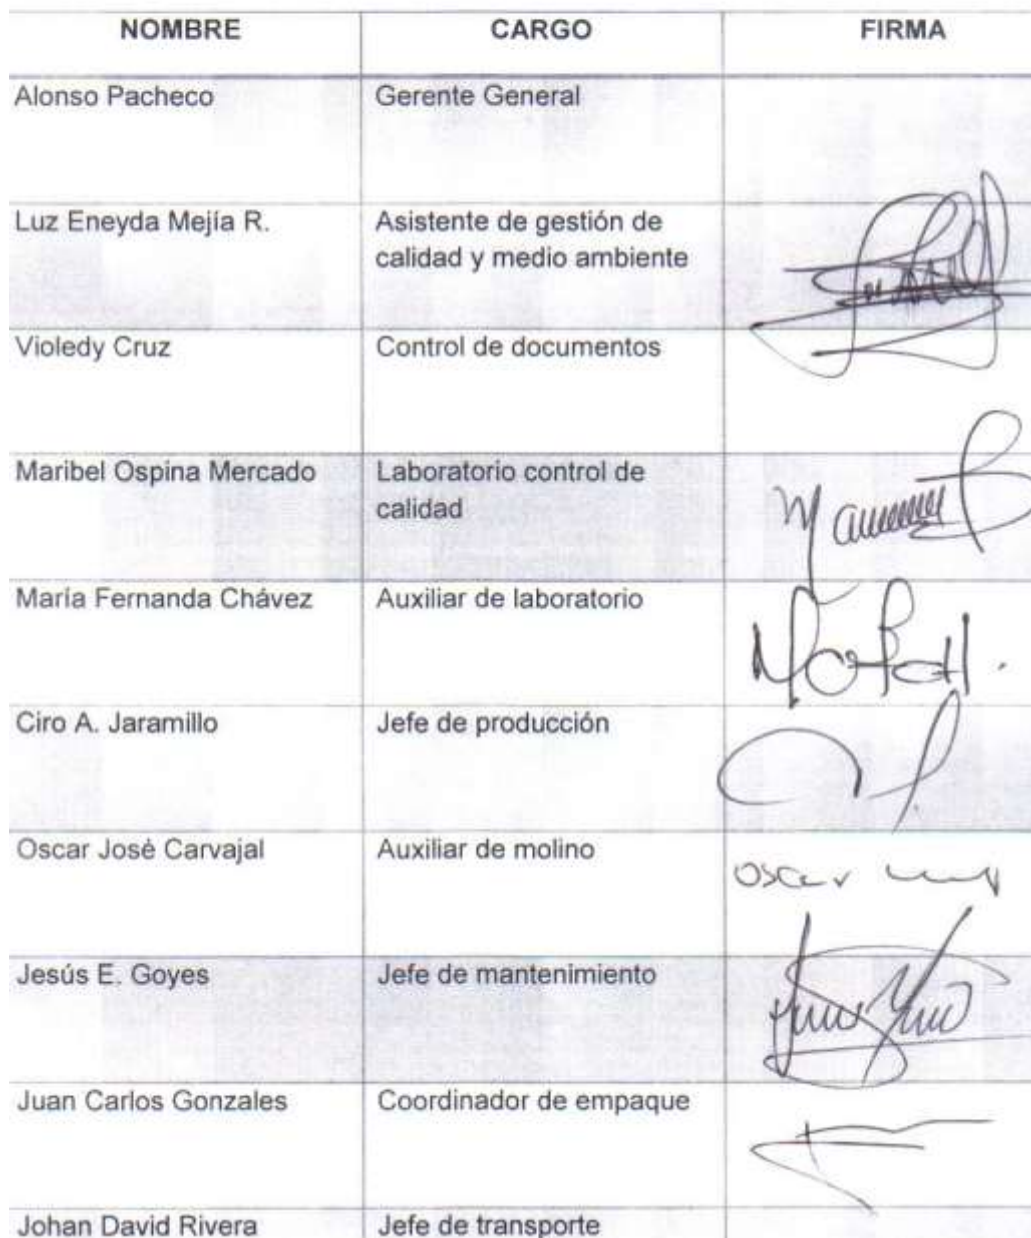 NOMBRE CARGO FIRMA
Alonso Pacheco Gerente General
Luz Eneyda Mejía R. Asistente de gestión de
calidad y medio ambiente
Violedy Cruz Control de documentos
Maribel Ospina Mercado Laboratorio control de
calidad
María Fernanda Chávez Auxiliar de laboratorio
Ciro A. Jaramillo Jefe de producción
Oscar José Carvajal Auxiliar de molino
oscar
Jesús E. Goyes Jefe de mantenimiento
Juan Carlos Gonzales Coordinador de empaque
Johan David Rivera Jefe de transporte